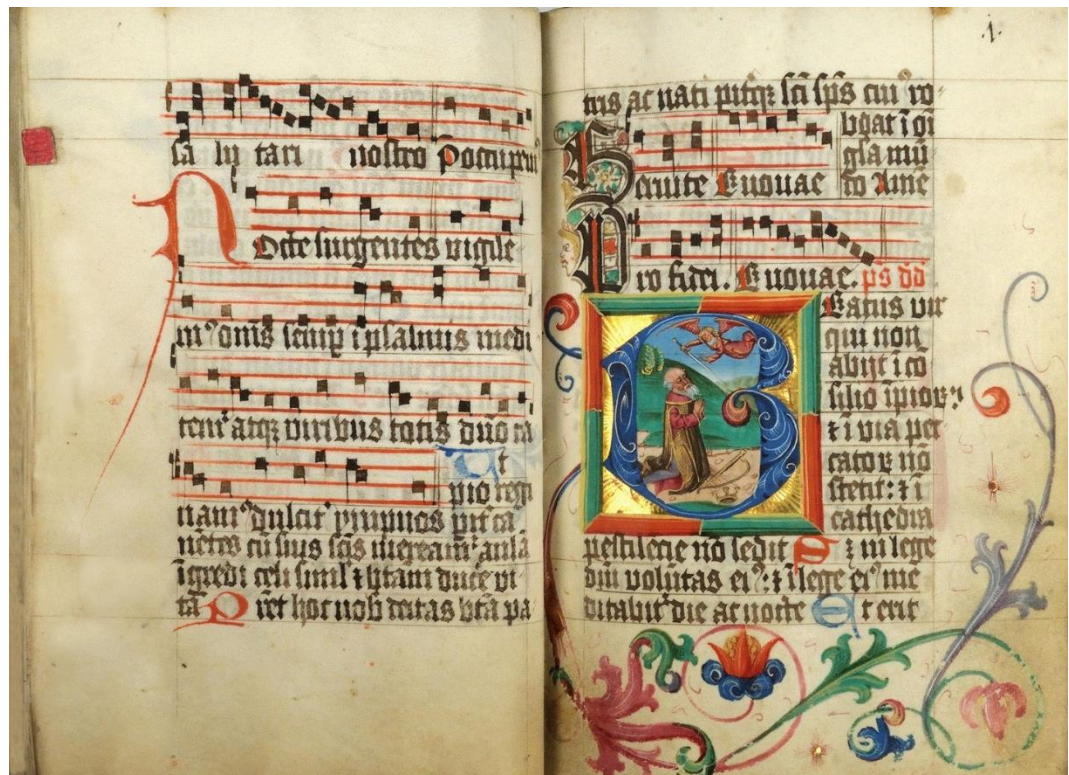 sa lu tari nostro Preocupem
Nocte surgentes vigile
mꝰ omīs semp̄ ī psalmis medi
temᷣ atqꝫ viribus totis dn̄o ca
Ut
pio regi
namꝰ dulcit᷑ ympnos pit̓ ca
nētes cū suis scīs mereamᷣ aulā
īgredi celi simul ⁊ btām ducē̓ vi
tā Pret̓ hoc nob̄ deitas btā pa
.1.
tris ac nati pitqꝫ scī spūs cui᷒ ro
boat ī oī
glā mū
Venite Euouae do Amē
Pro fidei. Euouae. pš dd̄
Beatus vir
qui non
abijt ī cō
silio īpioꝝ
⁊ ī via pec
catoꝝ nō
stetit: ⁊ ī
cathedra
pestilēcie nō sedit Sꝫ in lege
dn̄i volūtas eiꝰ: ⁊ ī lege eiꝰ me
ditabit᷑ die ac nocte Et erit